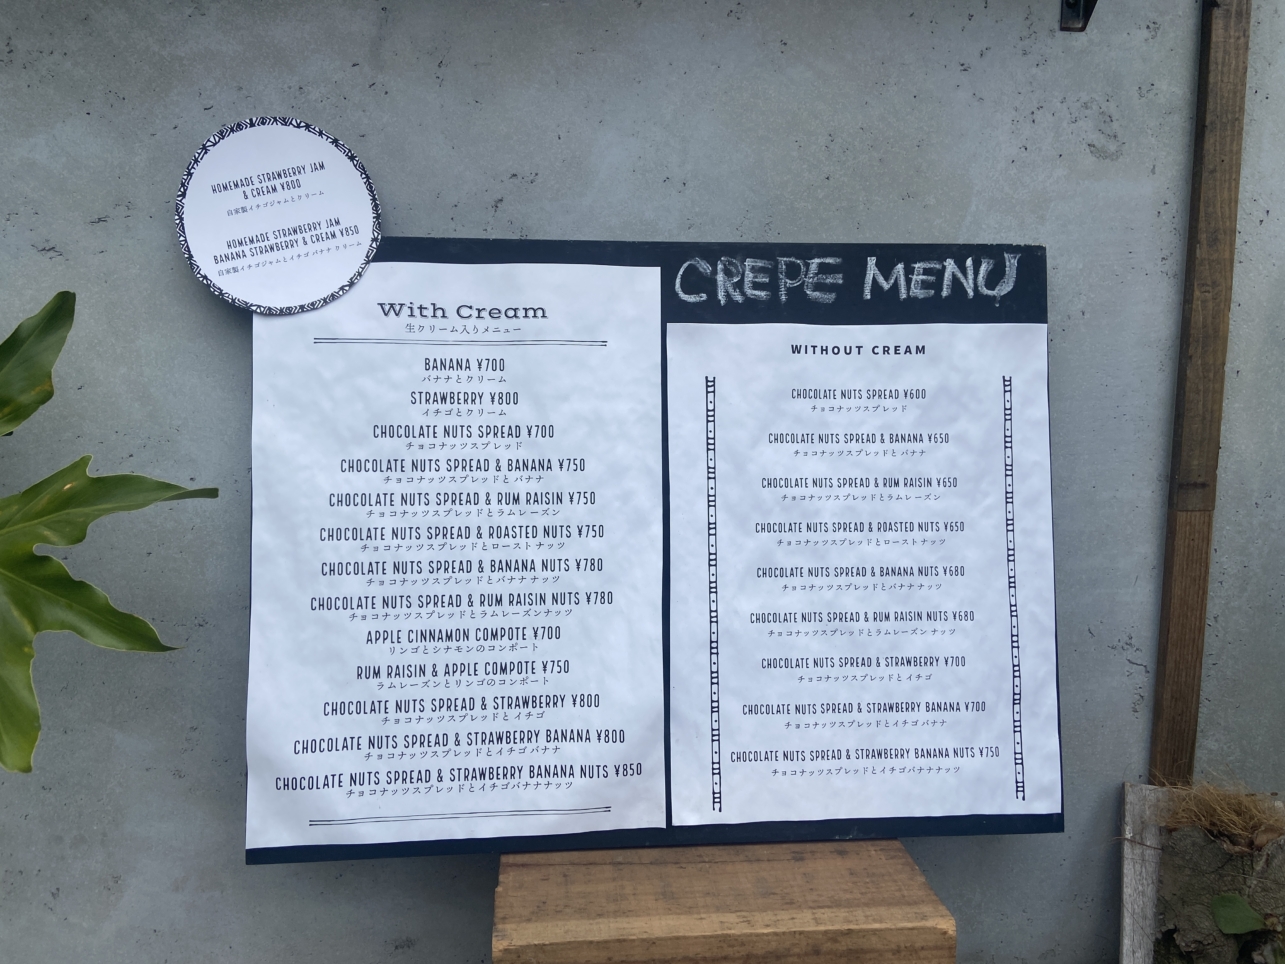 HOMEMADE STRAWBERRY JAM
& CREAM ¥800
自家製イチゴジャムとクリーム
HOMEMADE STRAWBERRY JAM
BANANA STRAWBERRY & CREAM ¥850
自家製イチゴジャムとイチゴバナナクリーム
CREPE MENU
With Cream
生クリーム入りメニュー
BANANA ¥700
バナナとクリーム
STRAWBERRY ¥800
イチゴとクリーム
CHOCOLATE NUTS SPREAD ¥700
チョコナッツスプレッド
CHOCOLATE NUTS SPREAD & BANANA ¥750
チョコナッツスプレッドとバナナ
CHOCOLATE NUTS SPREAD & RUM RAISIN ¥750
チョコナッツスプレッドとラムレーズン
CHOCOLATE NUTS SPREAD & ROASTED NUTS ¥750
チョコナッツスプレッドとローストナッツ
CHOCOLATE NUTS SPREAD & BANANA NUTS ¥780
チョコナッツスプレッドとバナナナッツ
CHOCOLATE NUTS SPREAD & RUM RAISIN NUTS ¥780
チョコナッツスプレッドとラムレーズンナッツ
APPLE CINNAMON COMPOTE ¥700
リンゴとシナモンのコンポート
RUM RAISIN & APPLE COMPOTE ¥750
ラムレーズンとリンゴのコンポート
CHOCOLATE NUTS SPREAD & STRAWBERRY ¥800
チョコナッツスプレッドとイチゴ
CHOCOLATE NUTS SPREAD & STRAWBERRY BANANA ¥800
チョコナッツスプレッドとイチゴバナナ
CHOCOLATE NUTS SPREAD & STRAWBERRY BANANA NUTS ¥850
チョコナッツスプレッドとイチゴバナナナッツ
WITHOUT CREAM
CHOCOLATE NUTS SPREAD ¥600
チョコナッツスプレッド
CHOCOLATE NUTS SPREAD & BANANA ¥650
チョコナッツスプレッドとバナナ
CHOCOLATE NUTS SPREAD & RUM RAISIN ¥650
チョコナッツスプレッドとラムレーズン
CHOCOLATE NUTS SPREAD & ROASTED NUTS ¥650
チョコナッツスプレッドとローストナッツ
CHOCOLATE NUTS SPREAD & BANANA NUTS ¥680
チョコナッツスプレッドとバナナナッツ
CHOCOLATE NUTS SPREAD & RUM RAISIN NUTS ¥680
チョコナッツスプレッドとラムレーズンナッツ
CHOCOLATE NUTS SPREAD & STRAWBERRY ¥700
チョコナッツスプレッドとイチゴ
CHOCOLATE NUTS SPREAD & STRAWBERRY BANANA ¥700
チョコナッツスプレッドとイチゴバナナ
CHOCOLATE NUTS SPREAD & STRAWBERRY BANANA NUTS ¥750
チョコナッツスプレッドとイチゴバナナナッツ